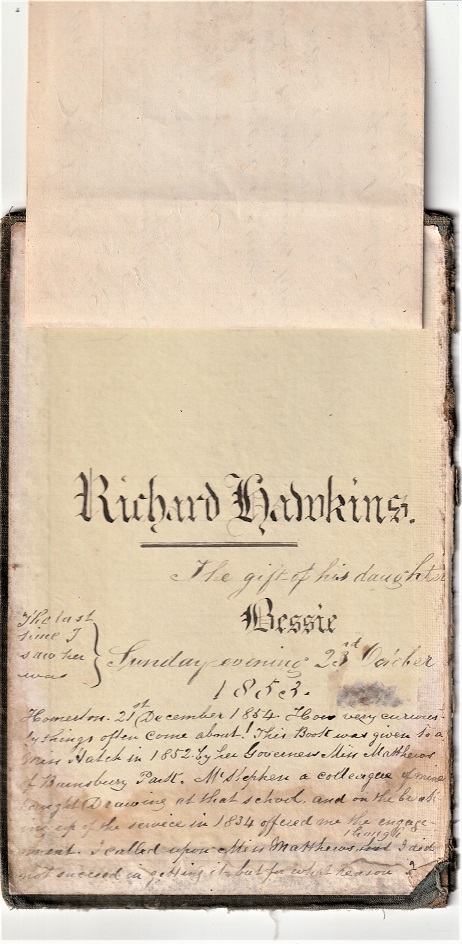 Richard Hawkins.
The gift of his daughter
Bessie
The last
time I
saw her
was
Sunday evening 23rd October
1853.
Homerton. 21st December 1854. How very curious-
ly things often come about! This Book was given to a
Miss Hatch in 1852 by her Governess Miss Matthews
of Barnsbury Park. Mr Stephen a colleague of mine
taught Drawing at that school, and on the break-
ing up of the service in 1834 offered me the engage-
ment. I called upon Miss Matthews though I did
not succeed in getting it but for what reason